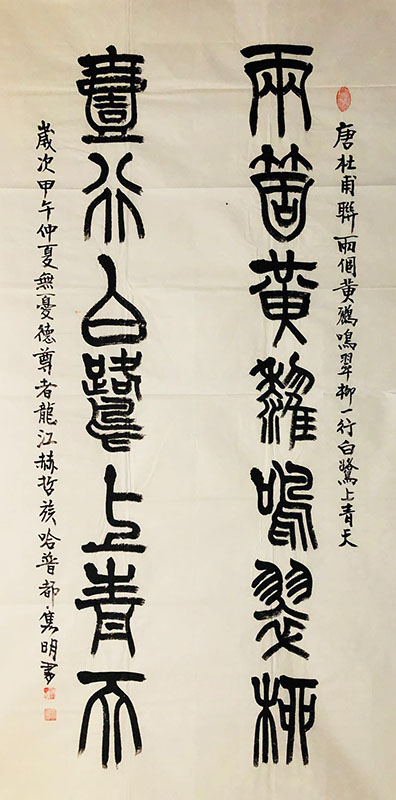 唐杜甫聯兩個黄鸝鳴翠柳一行白鷺上青天
兩箇黄鸝鳴翠柳
壹行白鷺上青天
歲次甲午仲夏無憂德尊者龍江赫哲族哈普都隽明書